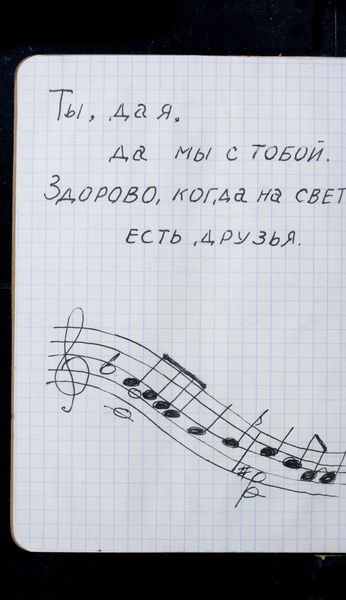 Ты, да я,
да мы с тобой.
Здорово, когда на свет
есть друзья.